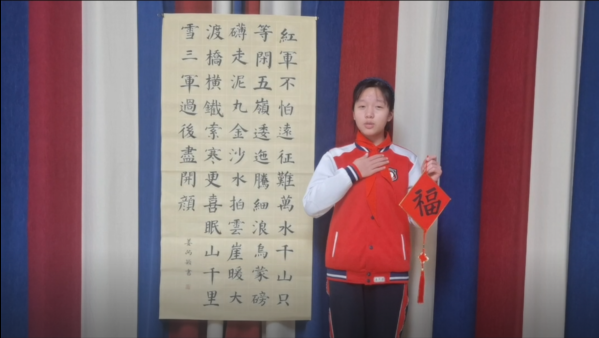 紅軍不怕遠征難萬水千山只
等閒五嶺逶迤騰細浪烏蒙磅
礴走泥丸金沙水拍雲崖暖大
渡橋橫鐵索寒更喜岷山千里
雪三軍過後盡開顏
福